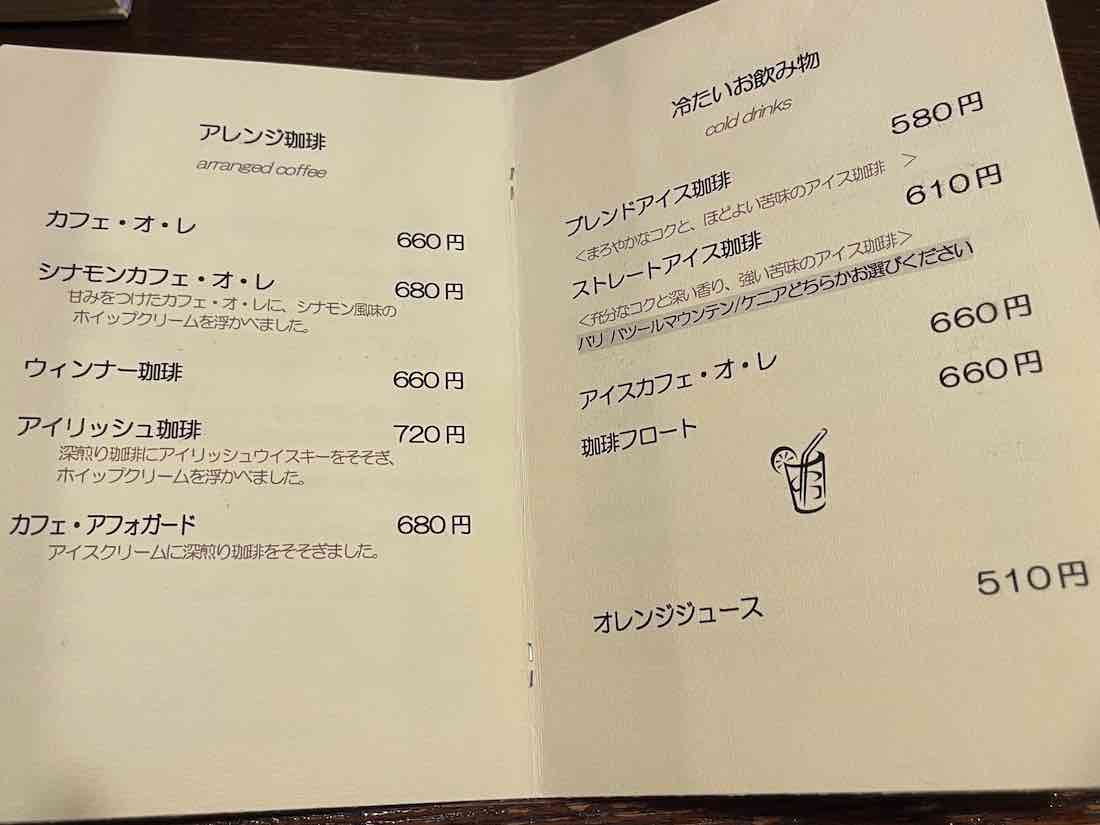 アレンジ珈琲
arranged coffee
カフェ・オ・レ 660円
シナモンカフェ・オ・レ 680円
甘みをつけたカフェ・オ・レに、シナモン風味の
ホイップクリームを浮かべました。
ウィンナー珈琲 660円
アイリッシュ珈琲 720円
深煎り珈琲にアイリッシュウイスキーをそそぎ、
ホイップクリームを浮かべました。
カフェ・アフォガード 680円
アイスクリームに深煎り珈琲をそそぎました。
冷たいお飲み物
cold drinks
ブレンドアイス珈琲 580円
<まろやかなコクと、ほどよい苦味のアイス珈琲 >
ストレートアイス珈琲 610円
<充分なコクと深い香り、強い苦味のアイス珈琲>
バリ バツールマウンテン/ケニアどちらかお選びください
アイスカフェ・オ・レ 660円
珈琲フロート 660円
オレンジジュース 510円